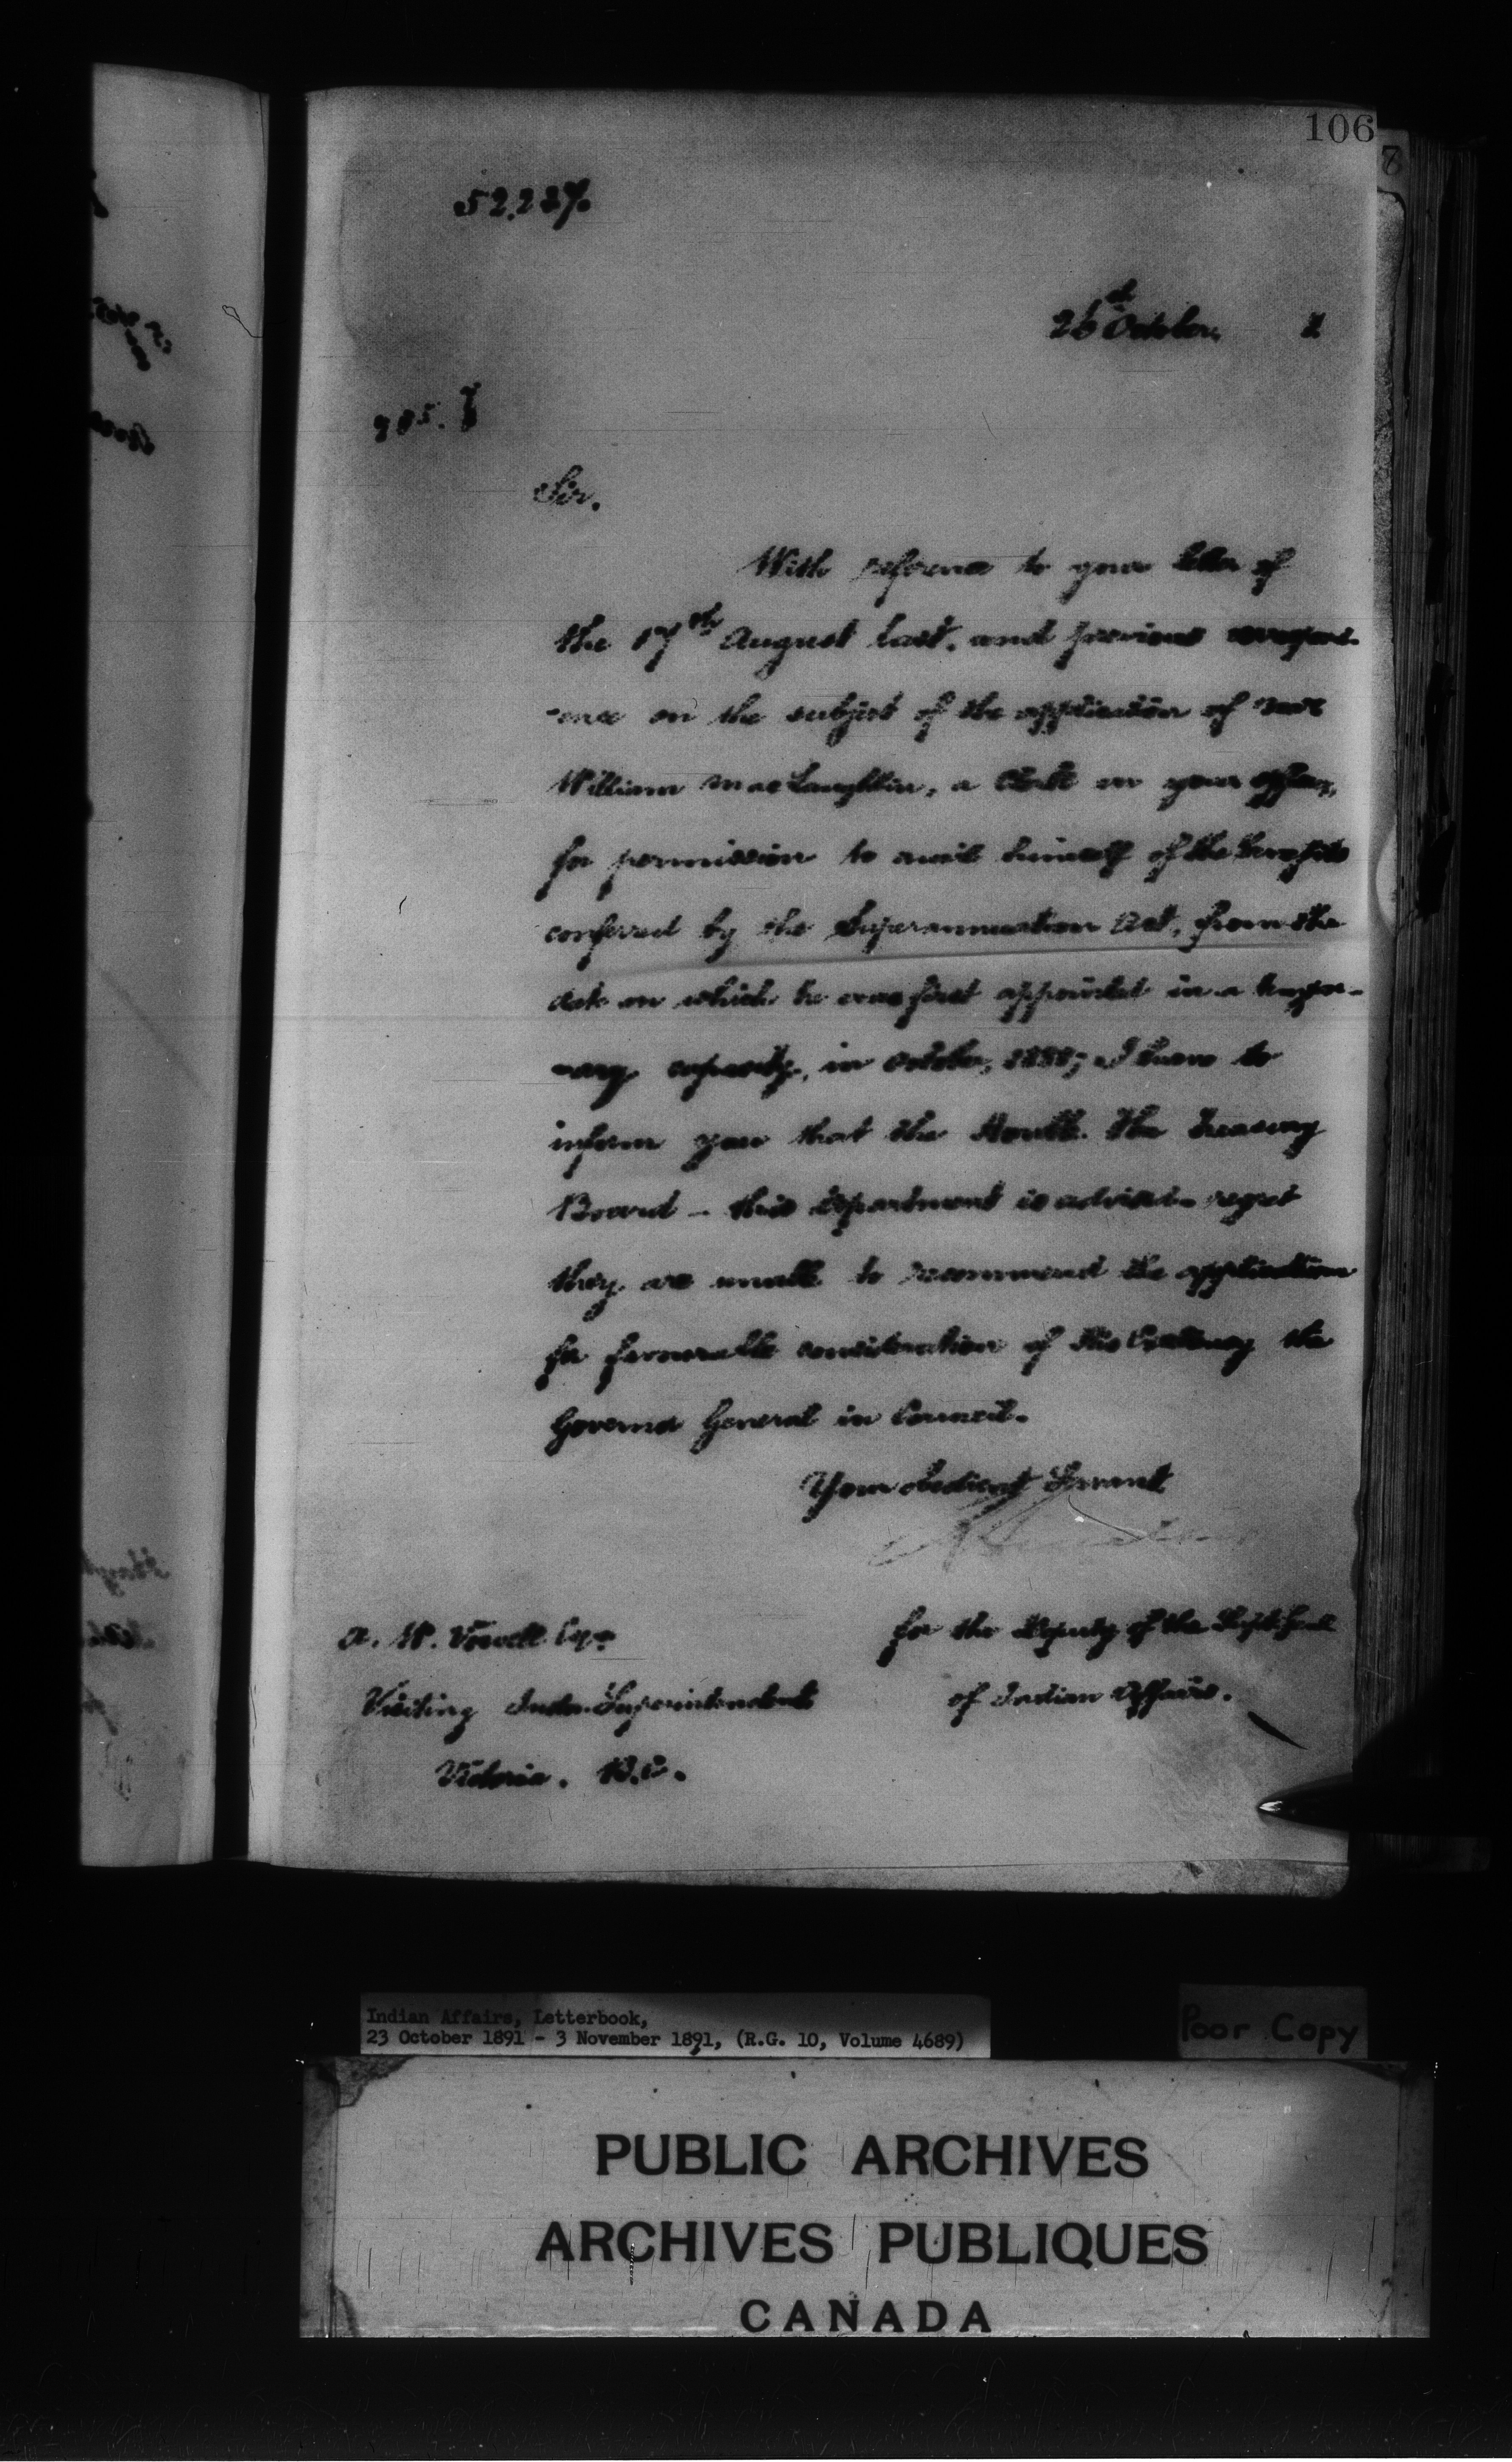 106
8
52.227.
26th October, 1
Sir.
With reference to your letter of
the 17th August last, and previous correspond-
-ence on the subject of the application of
William MacLaughlin, a Clerk in your office,
for permission to avail himself of the benefits
conferred by the Superannuation Act, from the
date on which he was first appointed in a tempo-
rary capacity, in October, 1888; I have to
inform you that the Honble. the Treasury
Board - this Department is advised - regret
they are unable to recommend the application
for favourable consideration of His Excellency the
Governor General in Council.
Your obedient Servant
A. W. Vowell Esqr
for the Deputy of the Supt. Genl
Visiting Indn. Superintendent
of Indian Affairs.
Victoria. B.C.
Indian Affairs, Letterbook,
23 October 1891 - 3 November 1891, (R.G. 10, Volume 4689)
Poor Copy
PUBLIC ARCHIVES
ARCHIVES PUBLIQUES
CANADA